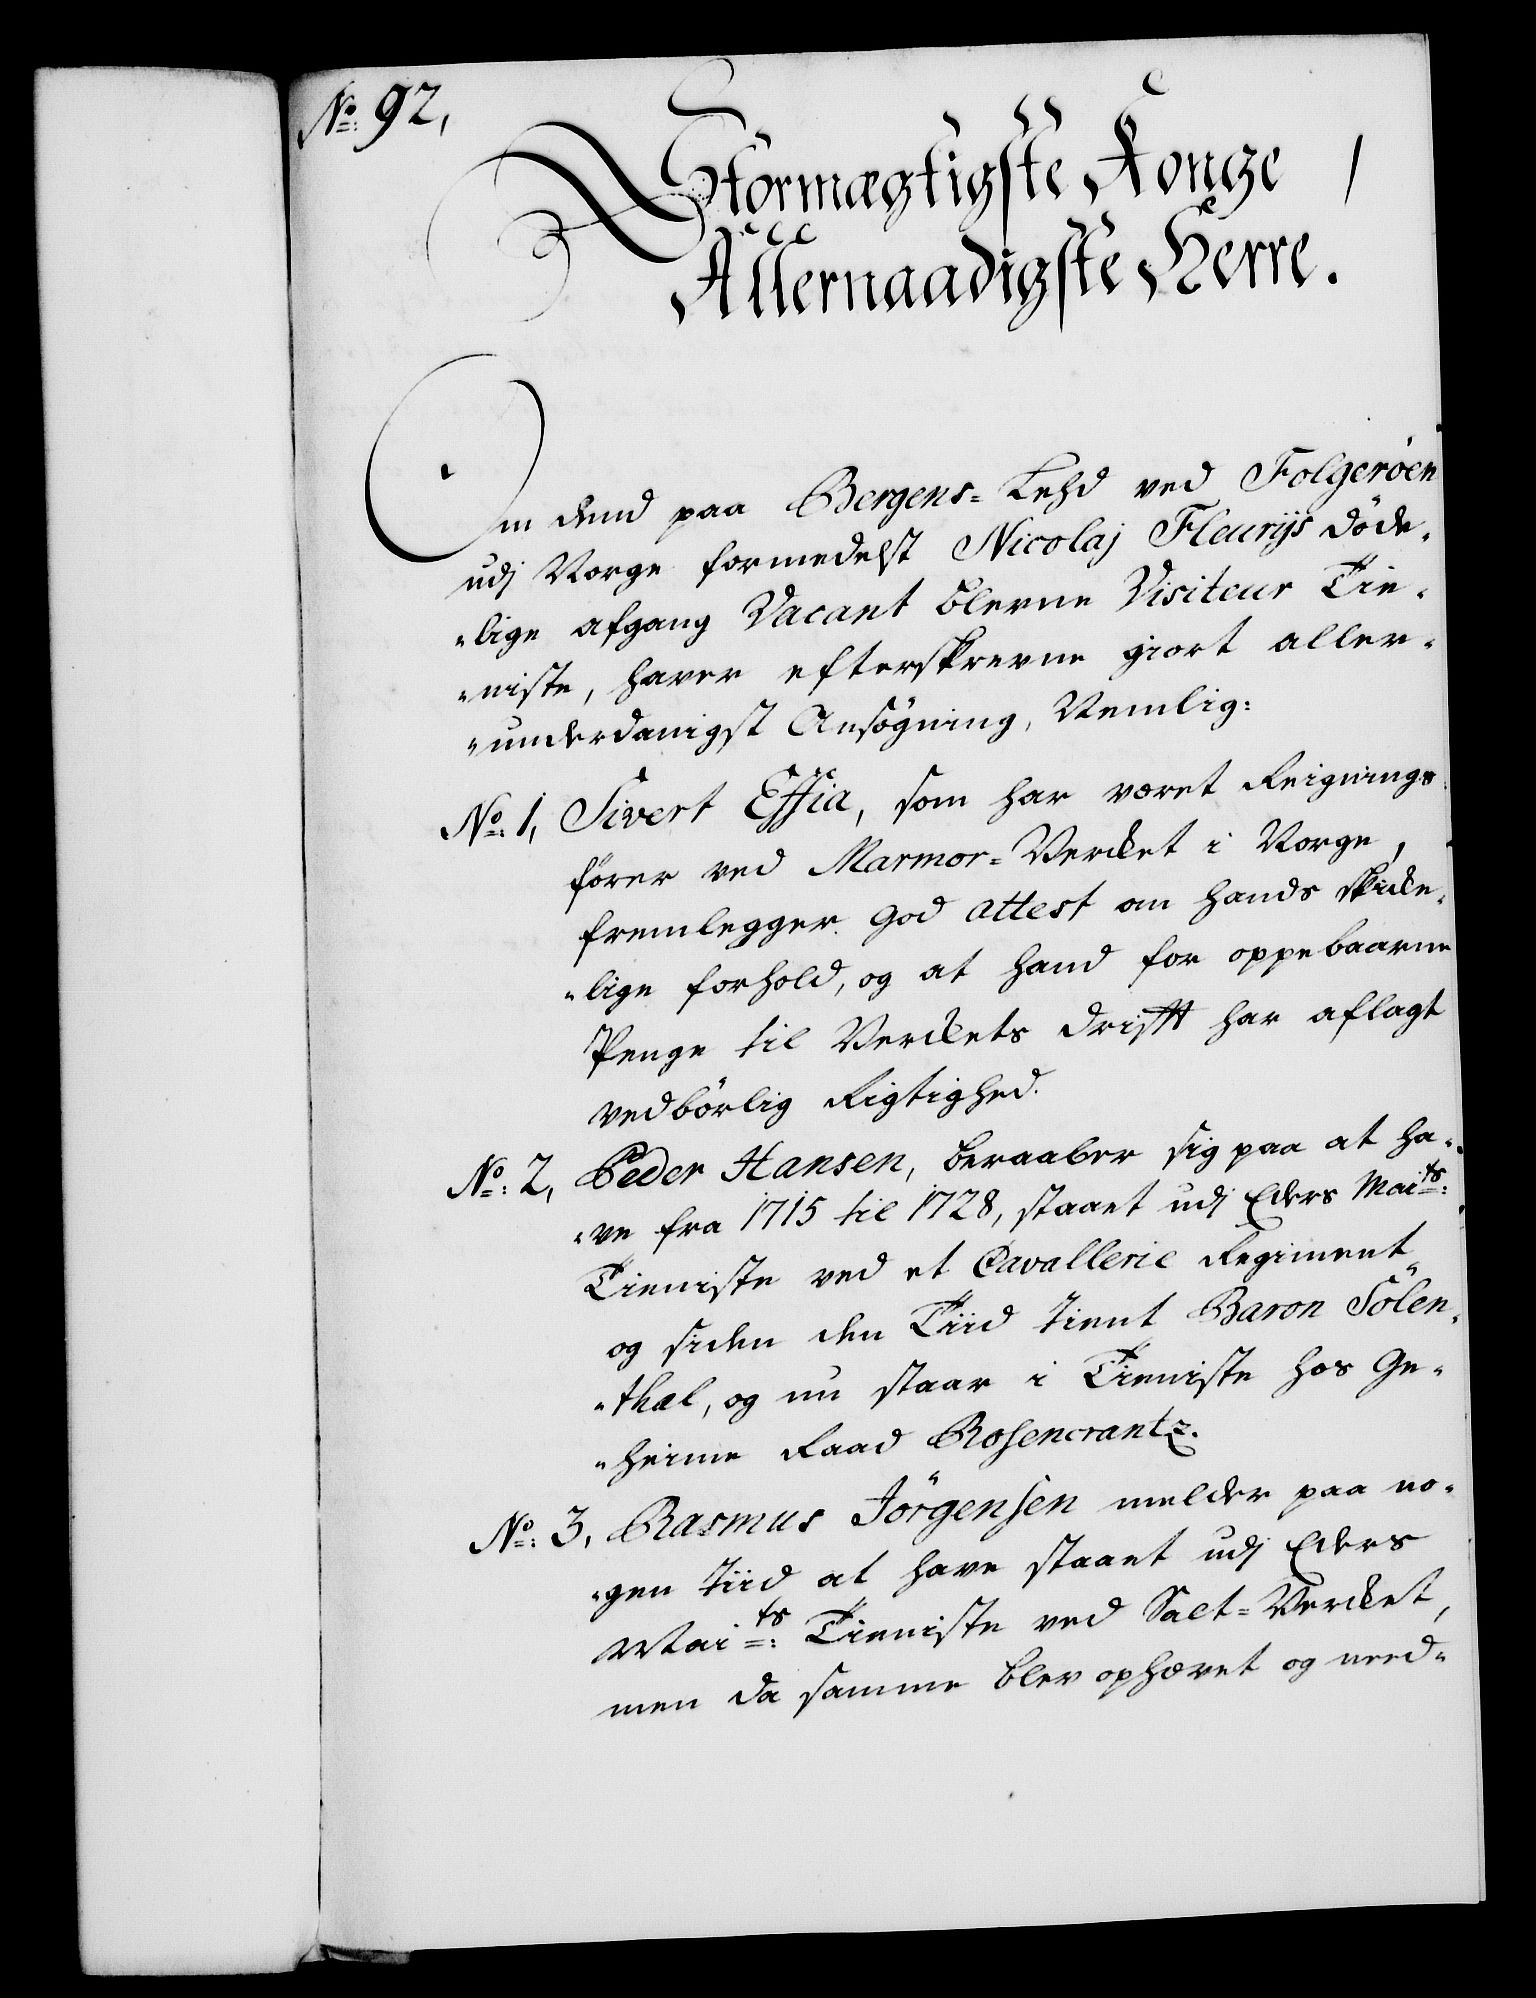 No: 92,
Stormægtigste Konge
Allernaadigste Herre.
Om dend paa Bergens=Lehd ved Folgeröen
udj Norge formedelst Nicolaj Fleurijs döde-
-lige afgang Vacant blevne Visiteur Tie-
-niste, haver efterskrevne giort aller-
-underdanigst Ansögning, Nemlig:
No: 1, Sivert Effia, som har været Reignings-
förer ved Marmor=Vercket i Norge,
fremlegger god attest om hands skicke-
-lige forhold, og at hand for oppebaarne
Penge til Verckets drifft har aflagt
vedbörlig Rigtighed.
No: 2, Peder Hansen, beraaber sig paa at ha-
-ve fra 1715 til 1728, staaet udj Eders Maits:
Tieniste ved et Cavallerie Regiment
og siden den Tiid tient Baron Sölen-
-thal, og nu staar i Tieniste hos Ge-
-heime Raad Rosencrantz.
No: 3, Rasmus Jörgensen melder paa no-
-gen tiid at have staaet udj Eders
Maits: Tieniste ved Salt=Vercket,
men da samme blev ophævet og need-